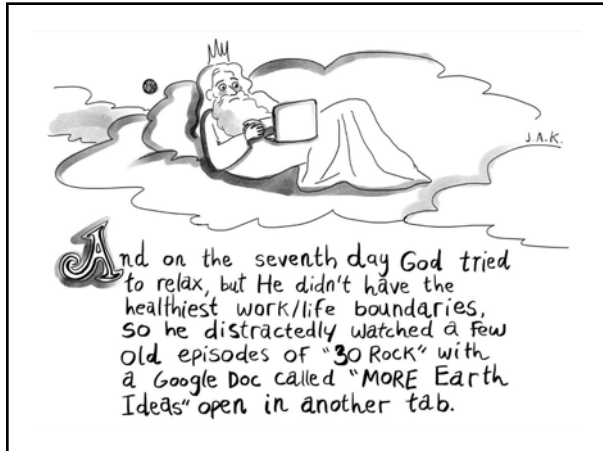 J.A.K.
And on the seventh day God tried
to relax, but He didn't have the
healthiest work/life boundaries,
so he distractedly watched a few
old episodes of "30 Rock" with
a Google Doc called "MORE Earth
Ideas" open in another tab.